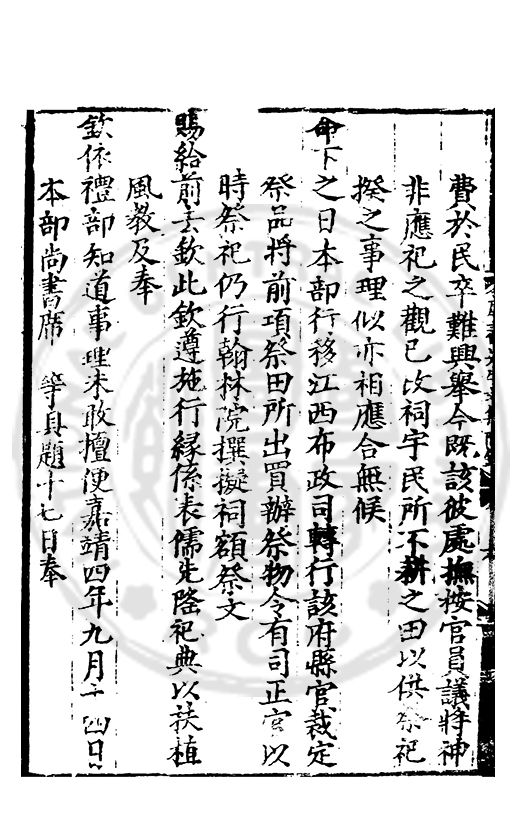 費於民卒難興舉今既該彼處撫按官員議將神
非應祀之觀已改祠宇民所不耕之田以供祭祀
揆之事理似亦相應合無候
命下之日本部行移江西布政司轉行該府縣官裁定
祭品將前項祭田所出買辦祭物令有司正官以
時祭祀仍行翰林院撰擬祠額祭文
賜給前去欽此欽遵施行緣係表儒先隆祀典以扶植
風教及奉
欽依禮部知道事理未敢擅便嘉靖四年九月十四日
本部尚書席 等具題十七日奉